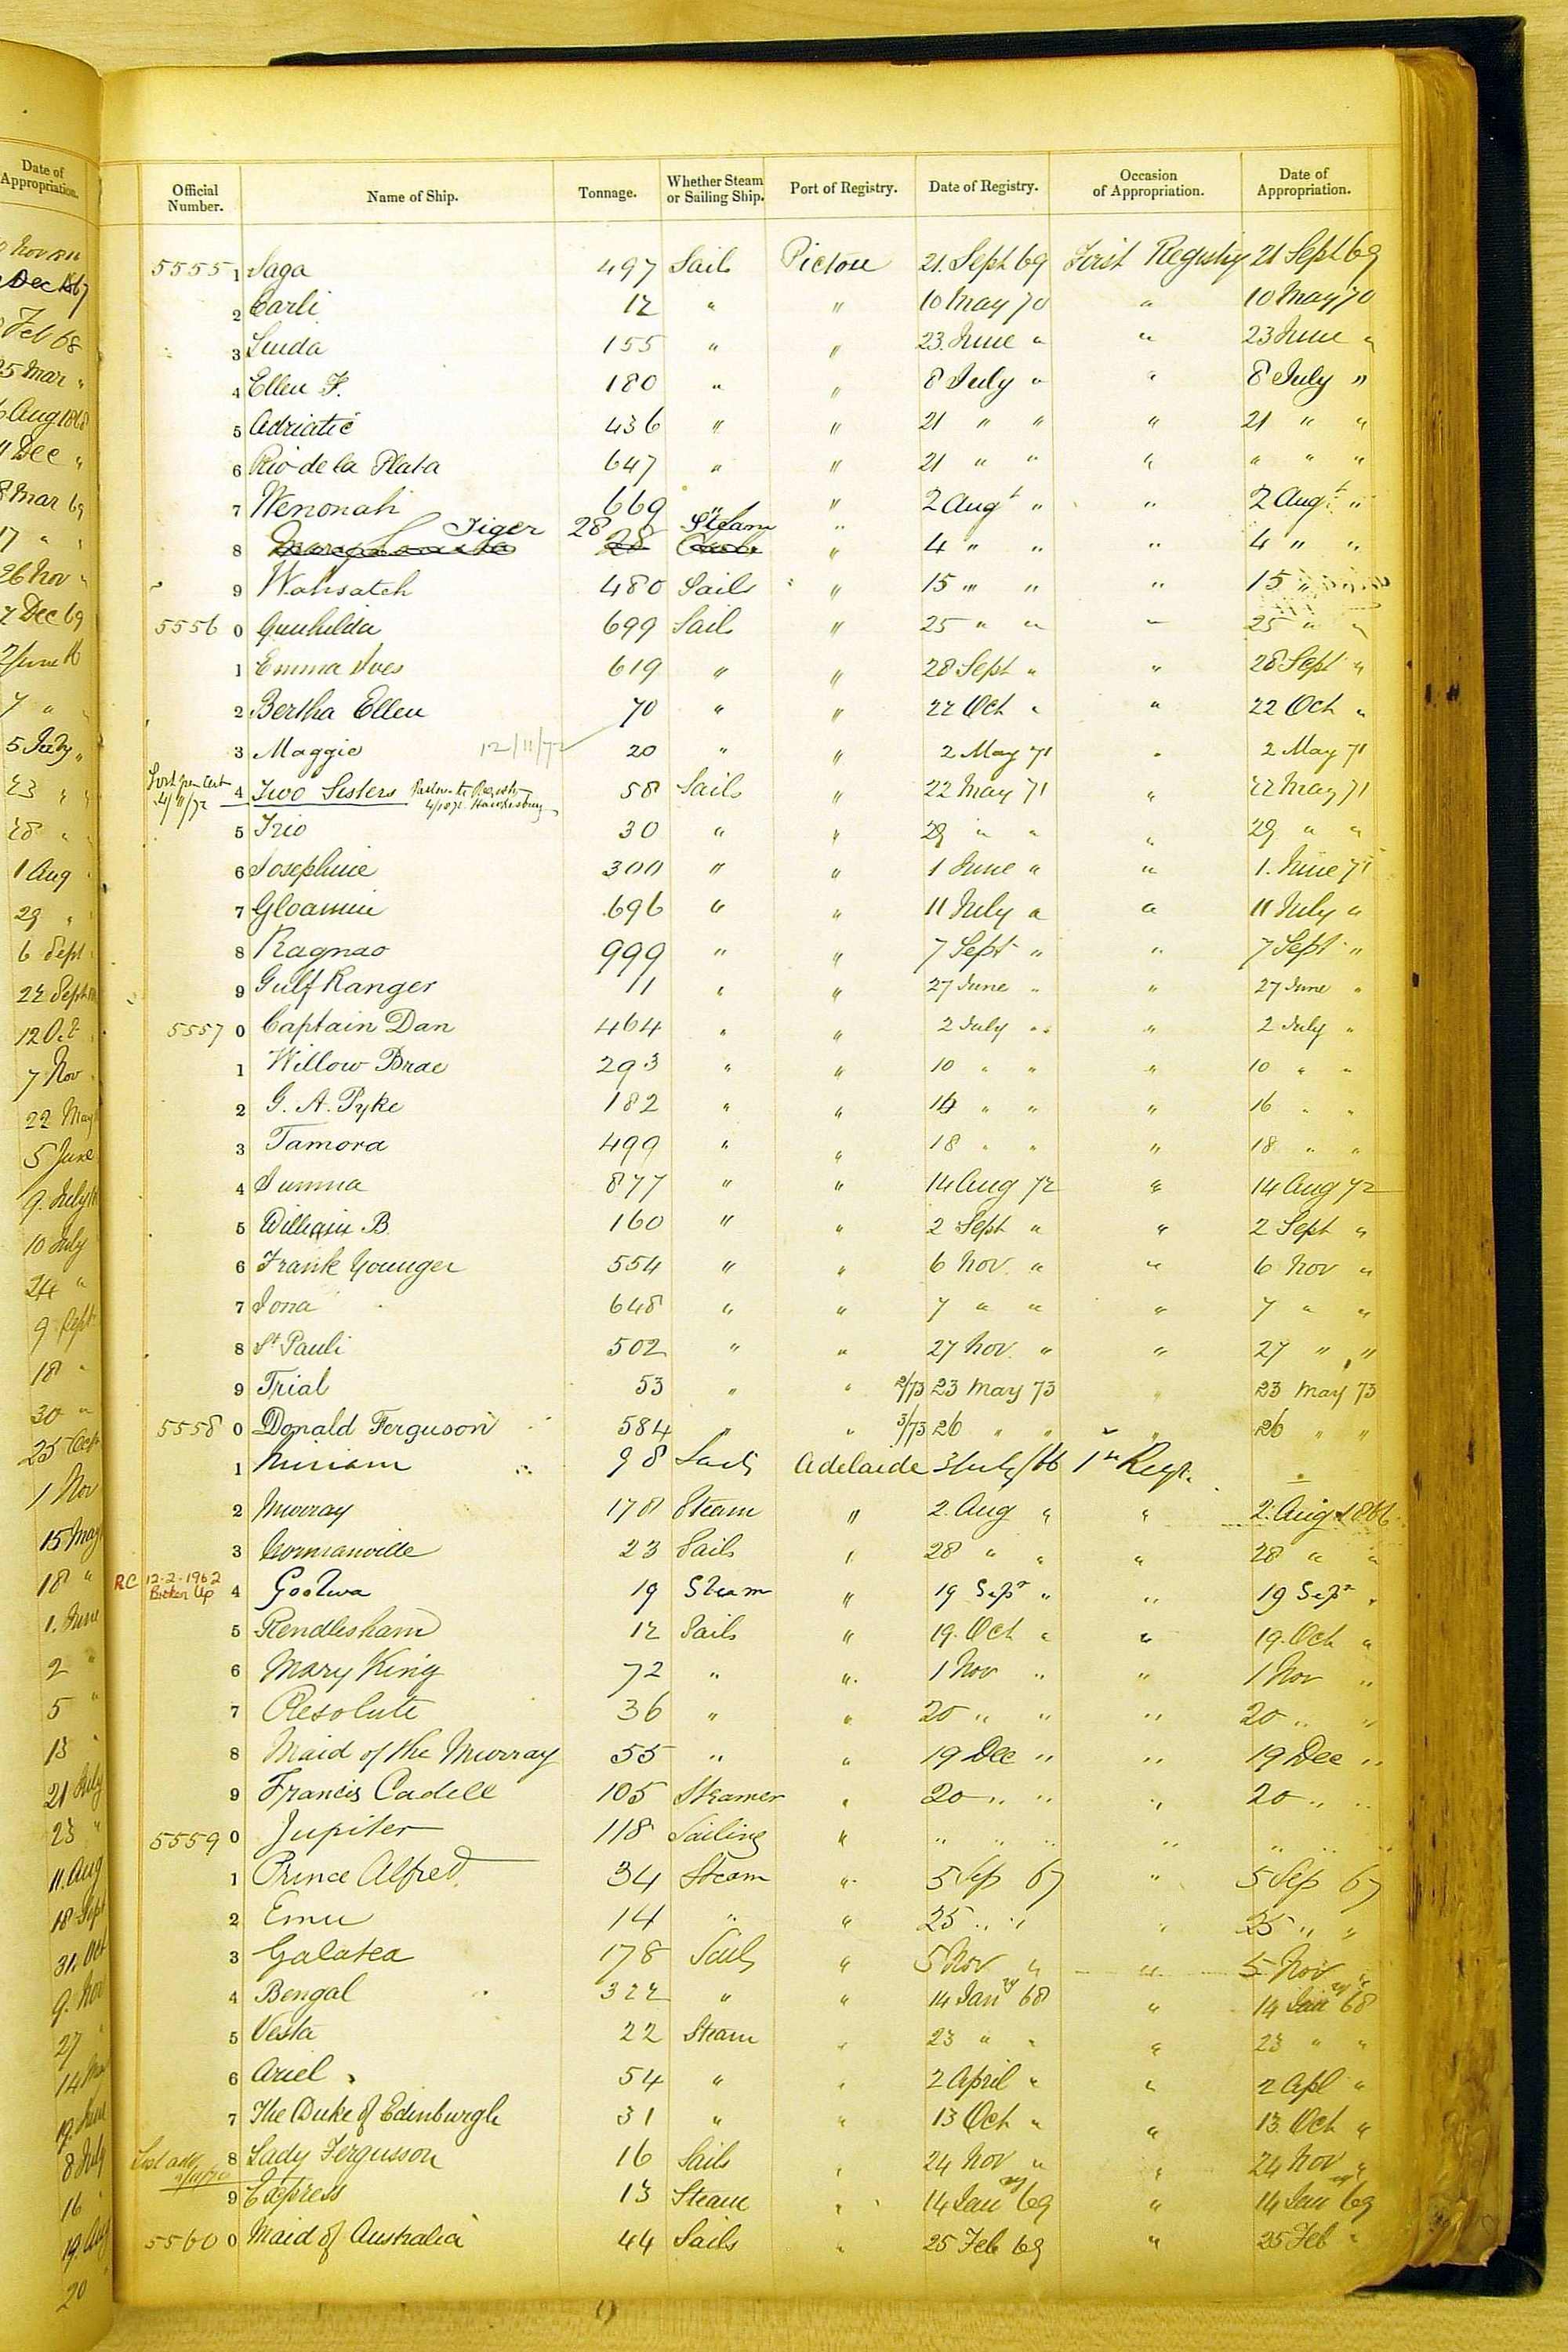 Date of Appropriation.
Dec 1867
Feb 68
25 Mar "
6 Aug 1868
11 Dec "
8 Mar 69
17 " "
26 Nov "
7 Dec 69
7 " "
5 July "
23 " "
28 " "
1 Aug
29 "
6 Sept
22 Sept
12 Oct
7 Nov
22 May
5 June
9. July
10 July
24 "
9 Sept
18 "
30 "
25 Oct
1 Nov
15 May
18 "
1. June
2 "
5 "
13 "
21 July
23 "
11. Aug
18 Sept
31. Oct
9. Nov
27 "
19. June
8 July
16
19. Aug
20
Official Number. Name of Ship. Tonnage. Whether Steam or Sailing Ship. Port of Registry. Date of Registry. Occasion of Appropriation. Date of Appropriation.
5555 1 Saga 497 Sails Pictou 21. Sept 69 First Registry 21 Sept 69
2 Carli 12 " " 10 May 70 " 10 May 70
3 Linda 155 " " 23. June " " 23 June "
4 Ellen F. 180 " " 8 July " " 8 July "
5 Adriatic 436 " " 21 " " " 21 " "
6 Rio de la Plata 647 " " 21 " " " " " "
7 Wenonah 669 " " 2 Augt " " 2 Augt "
8 Tiger 28 Steam " 4 " " " 4 " "
9 Wahsatch 480 Sails " 15 " " " 15 "
5556 0 Gunhilda 699 Sails " 25 " " " 25 " "
1 Emma Ives 619 " " 28 Sept " " 28 Sept "
2 Bertha Ellen 70 " " 22 Oct " " 22 Oct "
3 Maggie 12/11/72 20 " " 2 May 71 " 2 May 71
Lost per Cert 4/11/72 4 Two Sisters 58 Sails " 22 May 71 " 22 May 71
5 Trio 30 " " 29 " " " 29 " "
6 Josephine 300 " " 1 June " " 1. June 71
7 Gloamin 696 " " 11 July " " 11 July "
8 Ragnar 999 " " 7 Sept " " 7 Sept "
9 Gulf Ranger 11 " " 27 June " " 27 June "
5557 0 Captain Dan 464 " " 2 July " " 2 July "
1 Willow Brae 293 " " 10 " " " 10 " "
2 G. A. Pyke 182 " " 16 " " " 16 " "
3 Tamora 499 " " 18 " " " 18 " "
4 Summa 877 " " 14 Aug 72 " 14 Aug 72
5 William B. 160 " " 2 Sept " " 2 Sept "
6 Frank Younger 554 " " 6 Nov. " " 6 Nov "
7 Iona 648 " " 7 " " " 7 " "
8 St Pauli 502 " " 27 Nov. " " 27 " "
9 Trial 53 " " 2/73 23 May 73 " 23 May 73
5558 0 Donald Ferguson 584 " " 3/73 26 " " " 26 " "
1 Miriam 98 Sails Adelaide 3 July/66 1st Regr.
2 Murray 178 Steam " 2. Aug " " 2. Aug 1866
3 23 Sails " 28 " " " 28 " "
RC 12.2.1962 Broken Up 4 Goolwa 19 Steam " 19 Sepr " " 19 Sepr "
5 Rendlesham 12 Sails " 19. Oct " " 19. Oct "
6 Mary King 72 " " 1 Nov " " 1 Nov "
7 Resolute 36 " " 20 " " " 20 " "
8 Maid of the Murray 55 " " 19 Dec " " 19 Dec "
9 Francis Cadell 105 Steamer " 20 " " " 20 " "
5559 0 Jupiter 118 Sailing " " " " " " " "
1 Prince Alfred 34 Steam " 5 Sep 67 " 5 Sep 67
2 Emu 14 " " 25 " " " 25 " "
3 Galatea 178 Sails " 5 Nov " " 5 Nov "
4 Bengal 322 " " 14 Jany 68 " 14 Jany 68
5 Vesta 22 Steam " 23 " " " 23 " "
6 Ariel 54 " " 2 April " " 2 Apl "
7 The Duke of Edinburgh 31 " " 13 Oct " " 13. Oct "
8 Lady Fergusson 16 Sails " 24 Nov " " 24 Nov "
9 Express 13 Steam " 14 Jany 69 " 14 Jany 69
5560 0 Maid of Australia 44 Sails " 25 Feb 69 " 25 Feb "